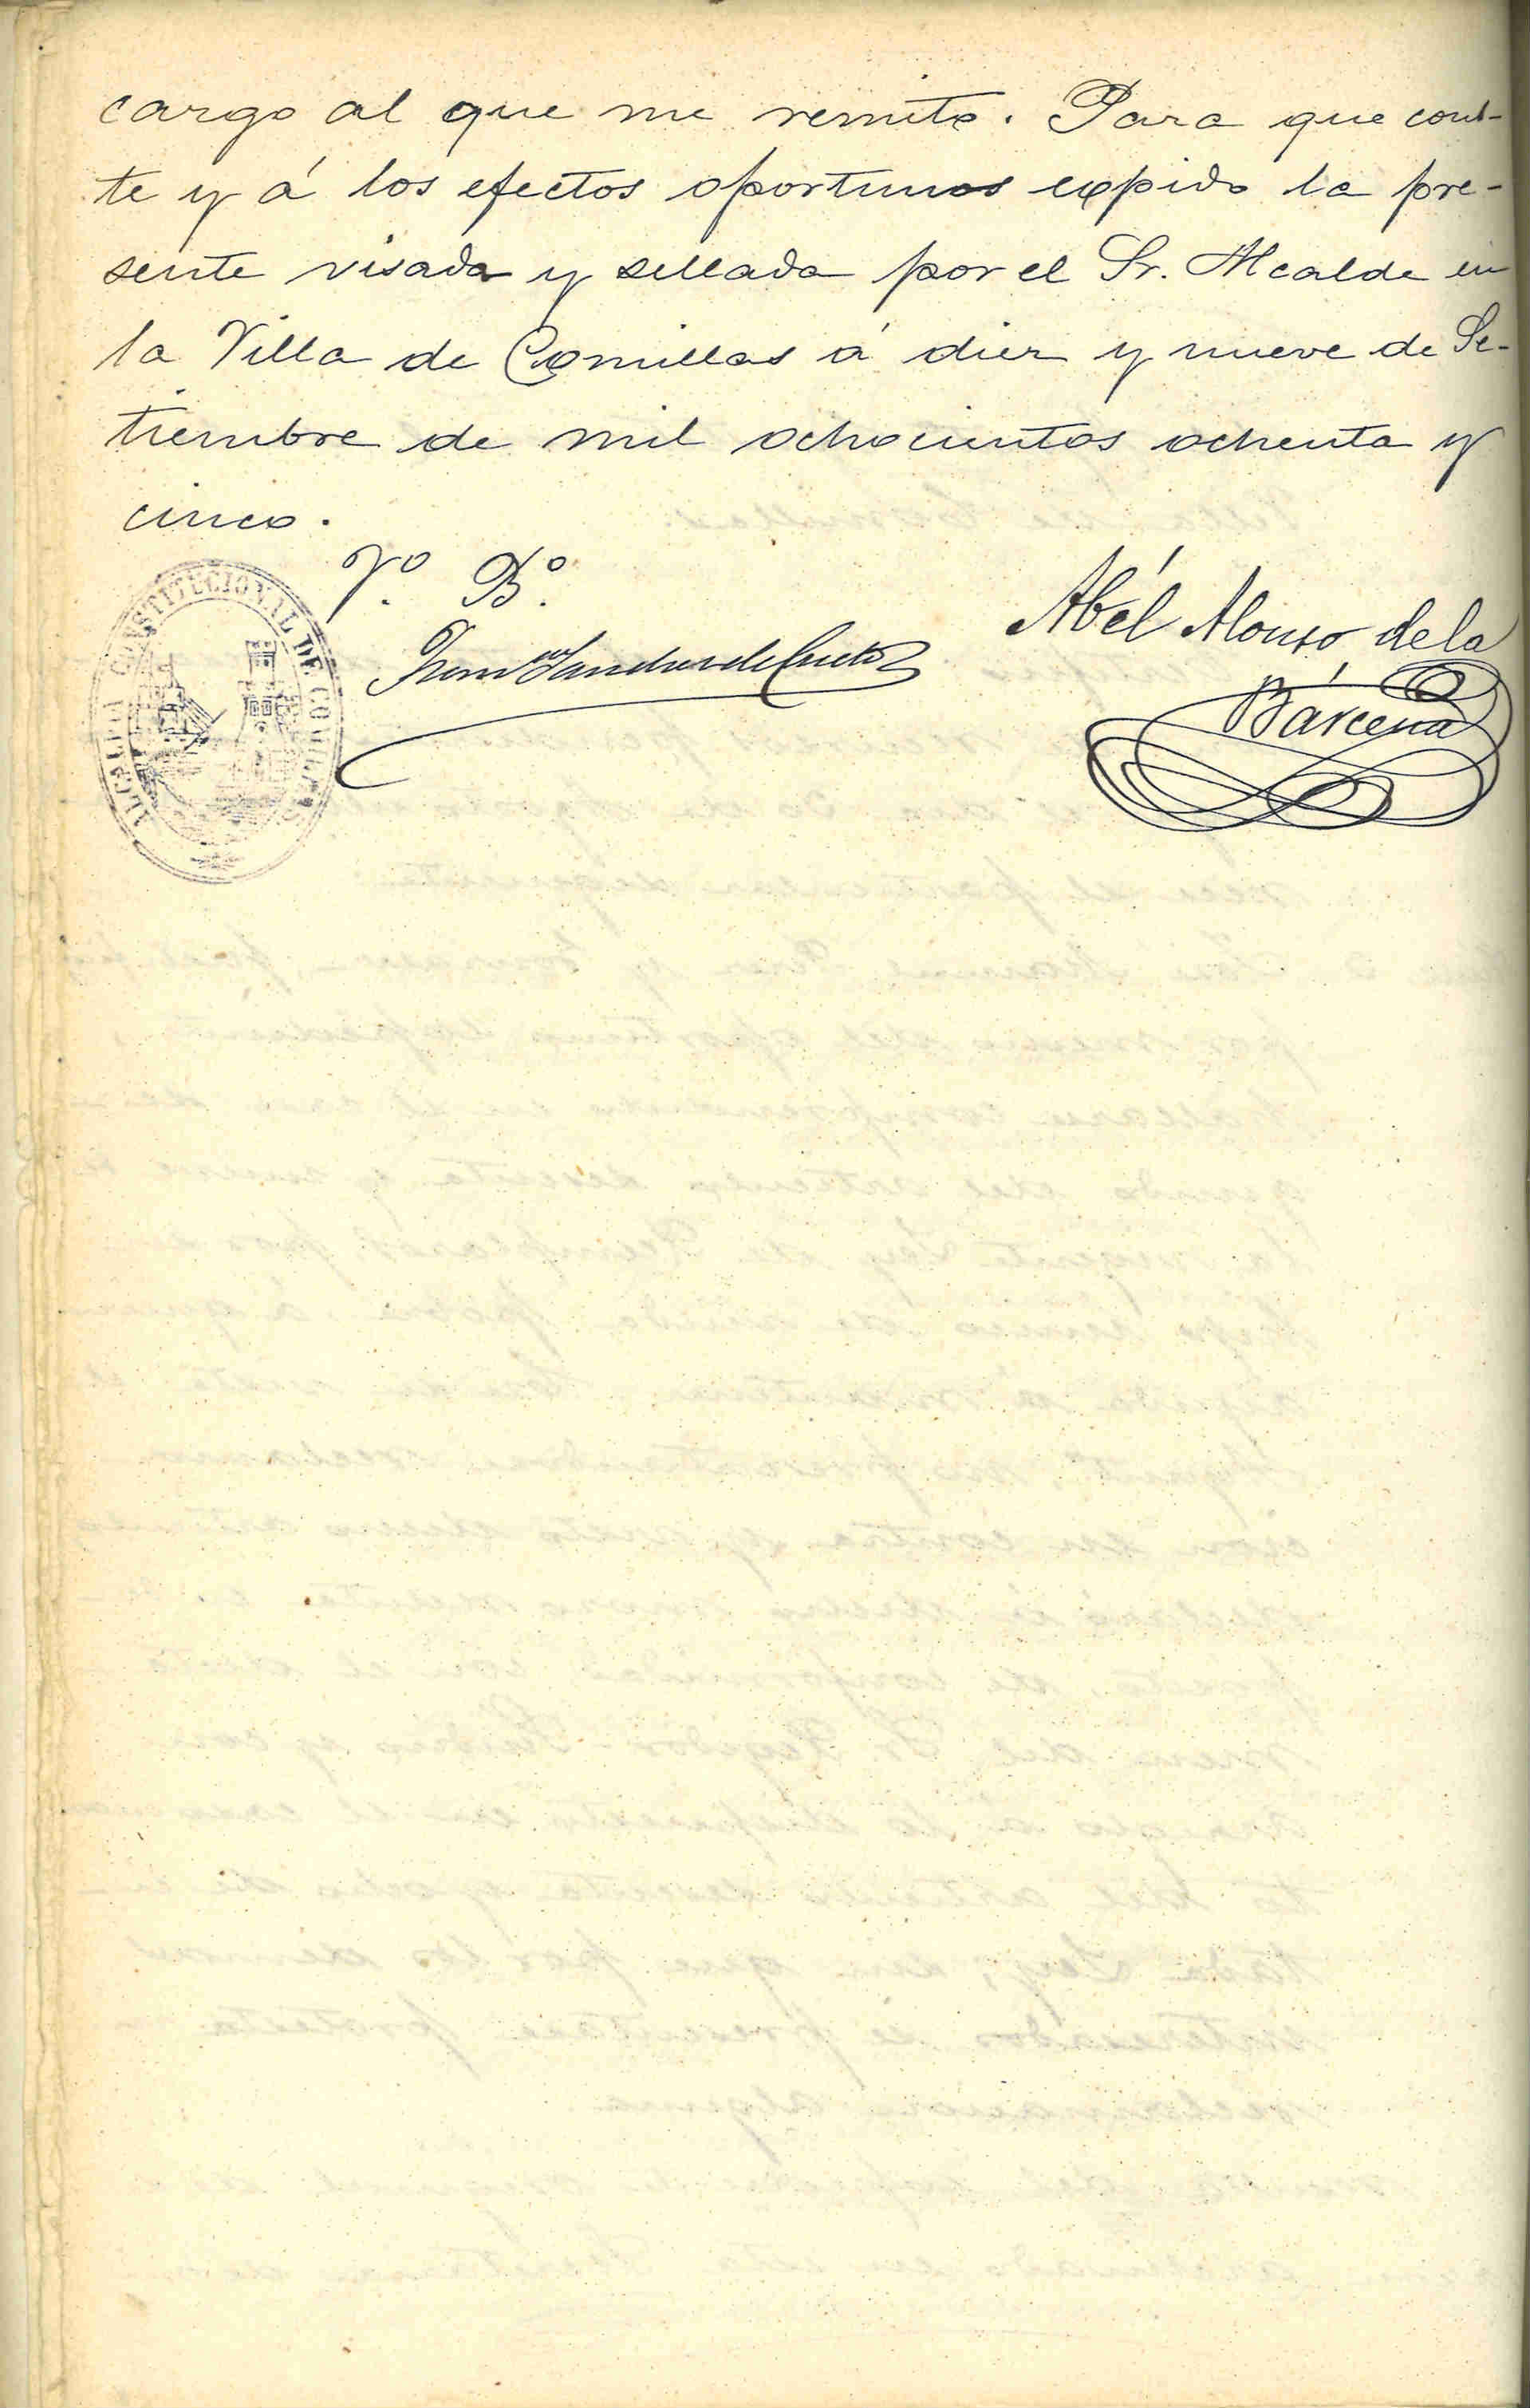 cargo al que me remito. Para que cons-
te y á los efectos oportunos expido la pre-
sente visada y sellada por el Sr. Alcalde en
la Villa de Comillas á diez y nueve de Se-
tiembre de mil ochocientos ochenta y
cinco.
Vº. Bº.
Sanchez de Cueto
Abél Alonso de la
Bárcena
ALCALDIA CONSTITUCIONAL DE COMILLAS